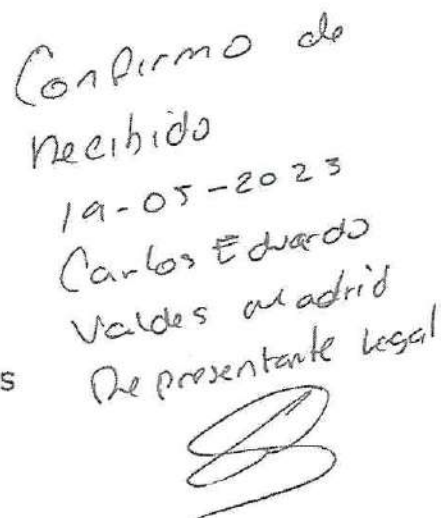 Confirmo de
Recibido
19-05-2023
Carlos Eduardo
Valdes Madrid
s Representante Legal